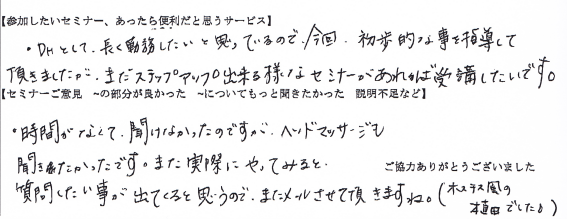 【参加したいセミナー、あったら便利だと思うサービス】
・DHとして、長く勤務したいと思っているので、今回、初歩的な事を指導して
頂きましたが、またステップアップ出来る様なセミナーがあれば受講したいです。
【セミナーご意見　~の部分が良かった　~についてもっと聞きたかった　説明不足など】
・時間がなくて、聞けなかったのですが、ヘッドマッサージも
聞きたかったです。また実際にやってみると、
ご協力ありがとうございました
質問したい事が出てくると思うので、またメールさせて頂きますね。(ホステス風の
植田でした)